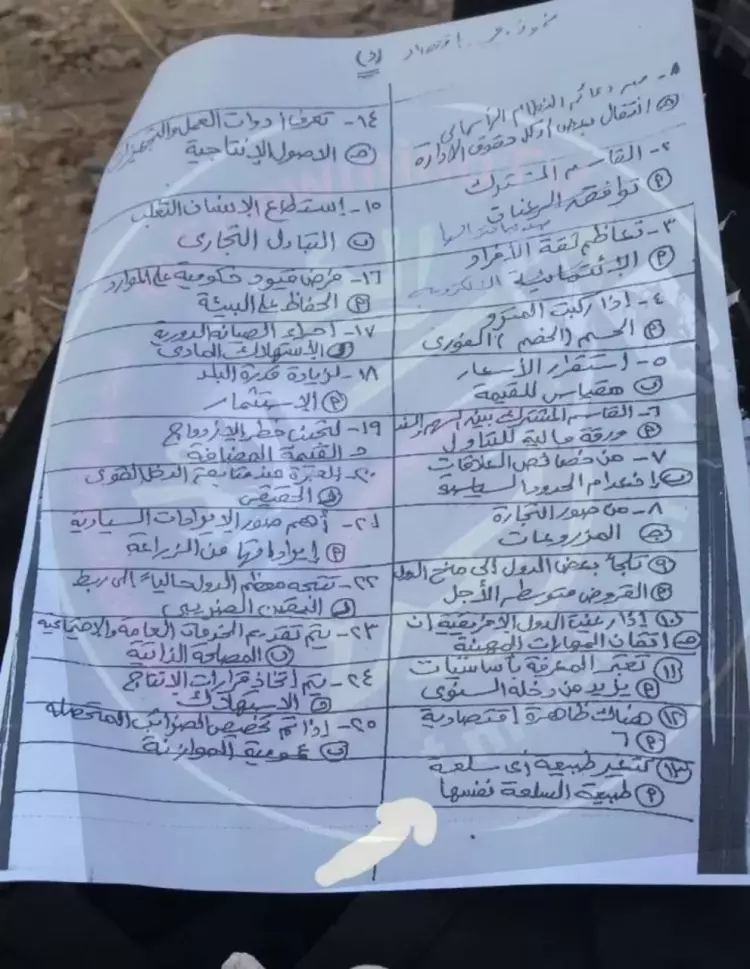 نموذج اقتصاد (د)
من دعائم النظام الرأسمالي
انتقال بعض أو كل حقوق الإدارة
٢- القاسم المشترك
توافق الرغبات
٣- تعاظم ثقة الأفراد
الائتمانية
٤- إذا ركبت المترو
الحسم (الخصم) الفورى
٥- استقرار الأسعار
مقياس للقيمة
٦- القاسم المشترك بين السهم والسند
ورقة مالية للتداول
٧- من خصائص العلاقات
انعدام الحدود السياسية
٨- من صور التجارة
المزروعات
٩ تلجأ بعض الدول إلى مانح الدول
القروض متوسطة الأجل
١٠ إذا رغبت الدول الافريقية أن
اتقان المهارات المهنية
١١ تعتبر المعرفة بأساسيات
يزيد من دخله السنوى
١٢ هناك ظاهرة اقتصادية
٦
١٣ تتغير طبيعة أى سلعة
طبيعة السلعة نفسها
١٤- تعرف أدوات العمل والتجهيزات
الاصول الإنتاجية
١٥- إستطاع الإنسان التغلب
التبادل التجارى
١٦- فرض قيود حكومية على الموارد
الحفاظ على البيئة
١٧- إجراء الصيانة الدورية
الاستهلاك المادى
١٨- لزيادة قدرة البلد
الاستثمار
١٩- لتجنب خطر الازدواج
د القيمة المضافة
٢٠- العبرة عند متابعة الدخل القومى
الحقيقى
٢١- أهم صور الايرادات السيادية
إيراداتها من الزراعة
٢٢- تتجه معظم الدول حالياً إلى ربط
اليقين الضريبى
٢٣- يتم تقديم الخدمات العامة والاجتماعية
المصلحة الذاتية
٢٤- يتم اتخاذ قرارات الإنتاج
الاستهلاك
٢٥- إذا تم تخصيص الضرائب المتحصلة
عمومية الموازنة